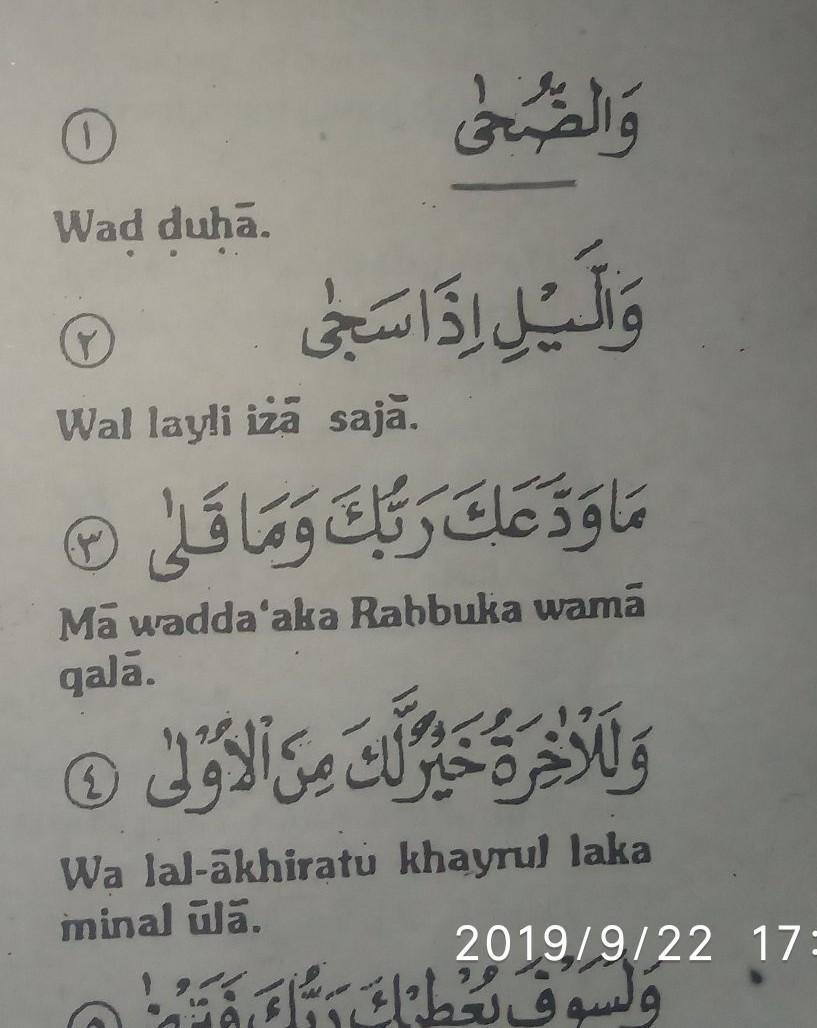 وَالضُّحٰى ①
Waḍ ḍuḥā.
وَالَّيْلِ اِذَا سَجٰى ٢
Wal layli iżā sajā.
مَا وَدَّعَكَ رَبُّكَ وَمَا قَلٰى ٣
Mā wadda‘aka Rabbuka wamā
qalā.
وَلَلْاٰخِرَةُ خَيْرٌ لَّكَ مِنَ الْاُوْلٰى ٤
Wa lal-ākhiratu khayrul laka
minal ūlā.
2019/9/22 17:
وَلَسَوْفَ يُعْطِيْكَ رَبُّكَ